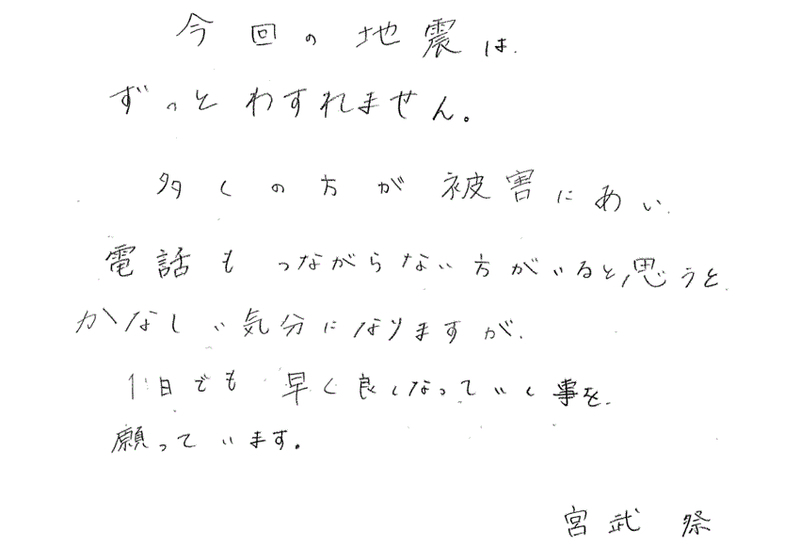 今回の地震は、
ずっとわすれません。
多くの方が被害にあい、
電話もつながらない方がいると思うと
かなしい気分になりますが、
1日でも早く良くなっていく事を
願っています。
宮武 祭